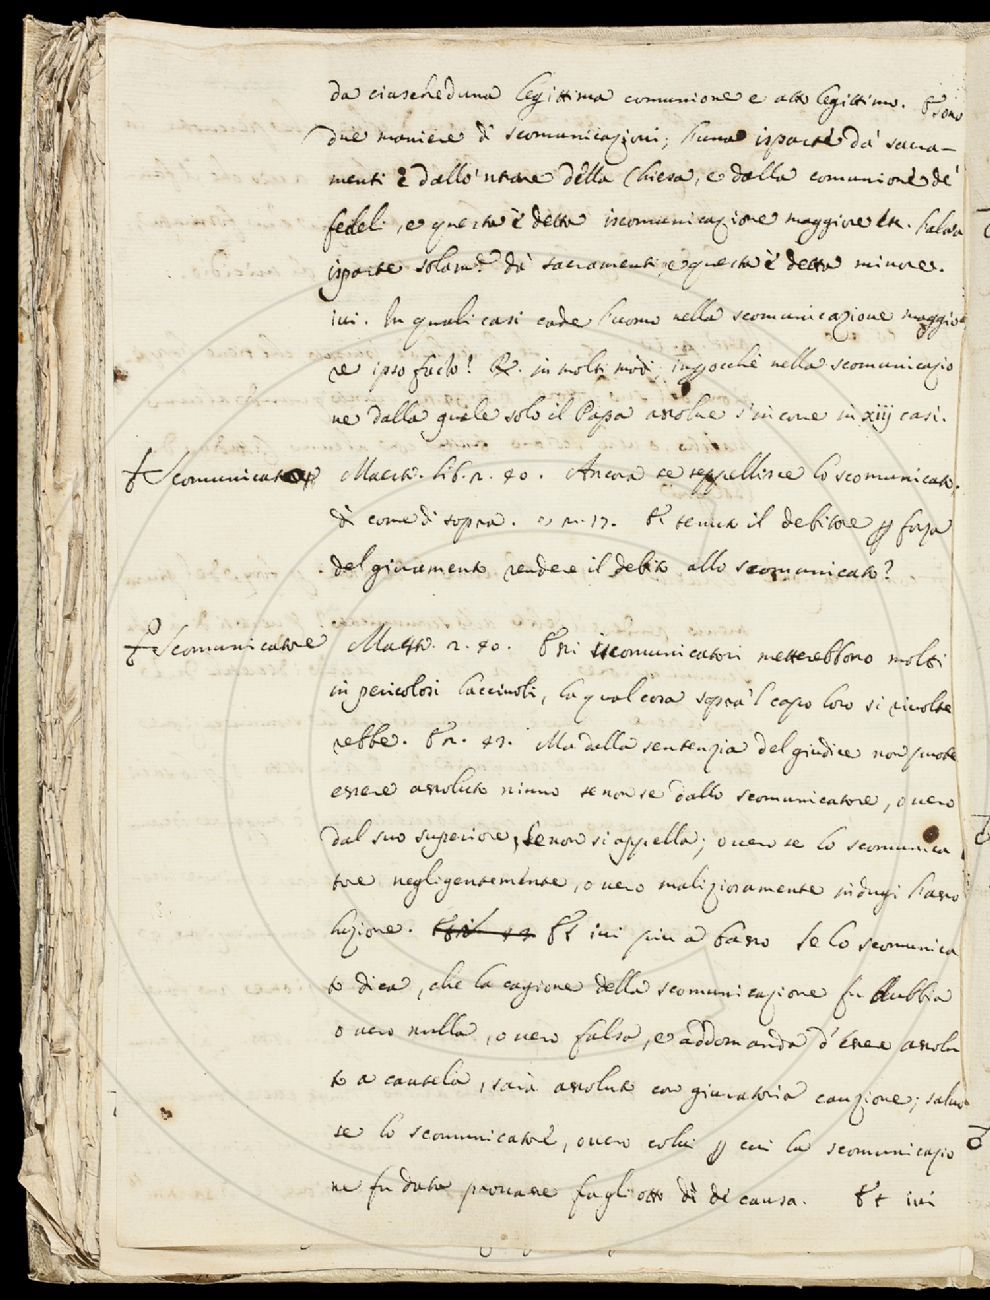 da ciascheduna legittima comunione e atto legittimo. E sono
due maniere di scomunicazioni; l'una isparte da' sacra-
menti e dallo 'ntrare della Chiesa, e dalla comunione de'
fedeli, e questa è detta iscomunicazione maggiore etc. l'altra
isparte solam.te da' sacramenti, e questa è detta minore.
ivi. In quali casi cade l'uomo nella scomunicazione maggio
re ipso facto? R. in molti modi; inperocchè nella scomunicazio
ne dalla quale solo il Papa assolve s'incorre in xiij casi.
Scomunicato Maestr. lib. 2. 40. Ancora se seppellisce lo scomunicato.
di come di sopra. E tenuto il debitore per forza
del giuramento rendere il debito allo scomunicato?
Scomunicatore Maestr. 2. 40. E sì iscomunicatori metterebbono molti
in pericolosi lacciuoli, la qual cosa sopra 'l capo loro si rivolte
rebbe. E 2. 43. Ma dalla sentenzia del giudice non puote
essere assoluto niuno se non se dallo scomunicatore, overo
dal suo superiore, se non si appella; overo se lo scomunica
tore negligentemente, overo maliziosamente indugi l'asso
luzione. Et ivi piu a basso Se lo scomunica
to dica, che la cagione della scomunicazione fu dubbia
overo nulla, overo falsa, e addomanda d'essere assolu
to a cautela, sarà assoluto con giuratoria cauzione; salvo
se lo scomunicatore, overo colui per cui la scomunicazio
ne fu data provasse fra gli otto dì di causa. Et ivi